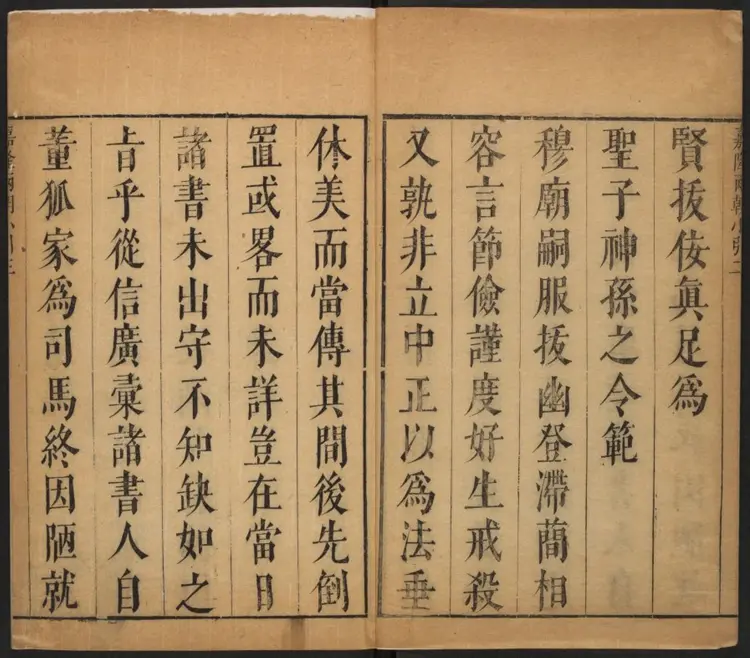 賢拔侫眞足爲
聖子神孫之令範
穆廟嗣服拔幽登滯蕳相
容言節儉謹度好生戒殺
又孰非立中正以爲法垂
休美而當傳其間後先倒
置或畧而未詳豈在當日
諸書未出守不知缺如之
㫖乎從信廣彙諸書人自
董狐家爲司馬終因陋就